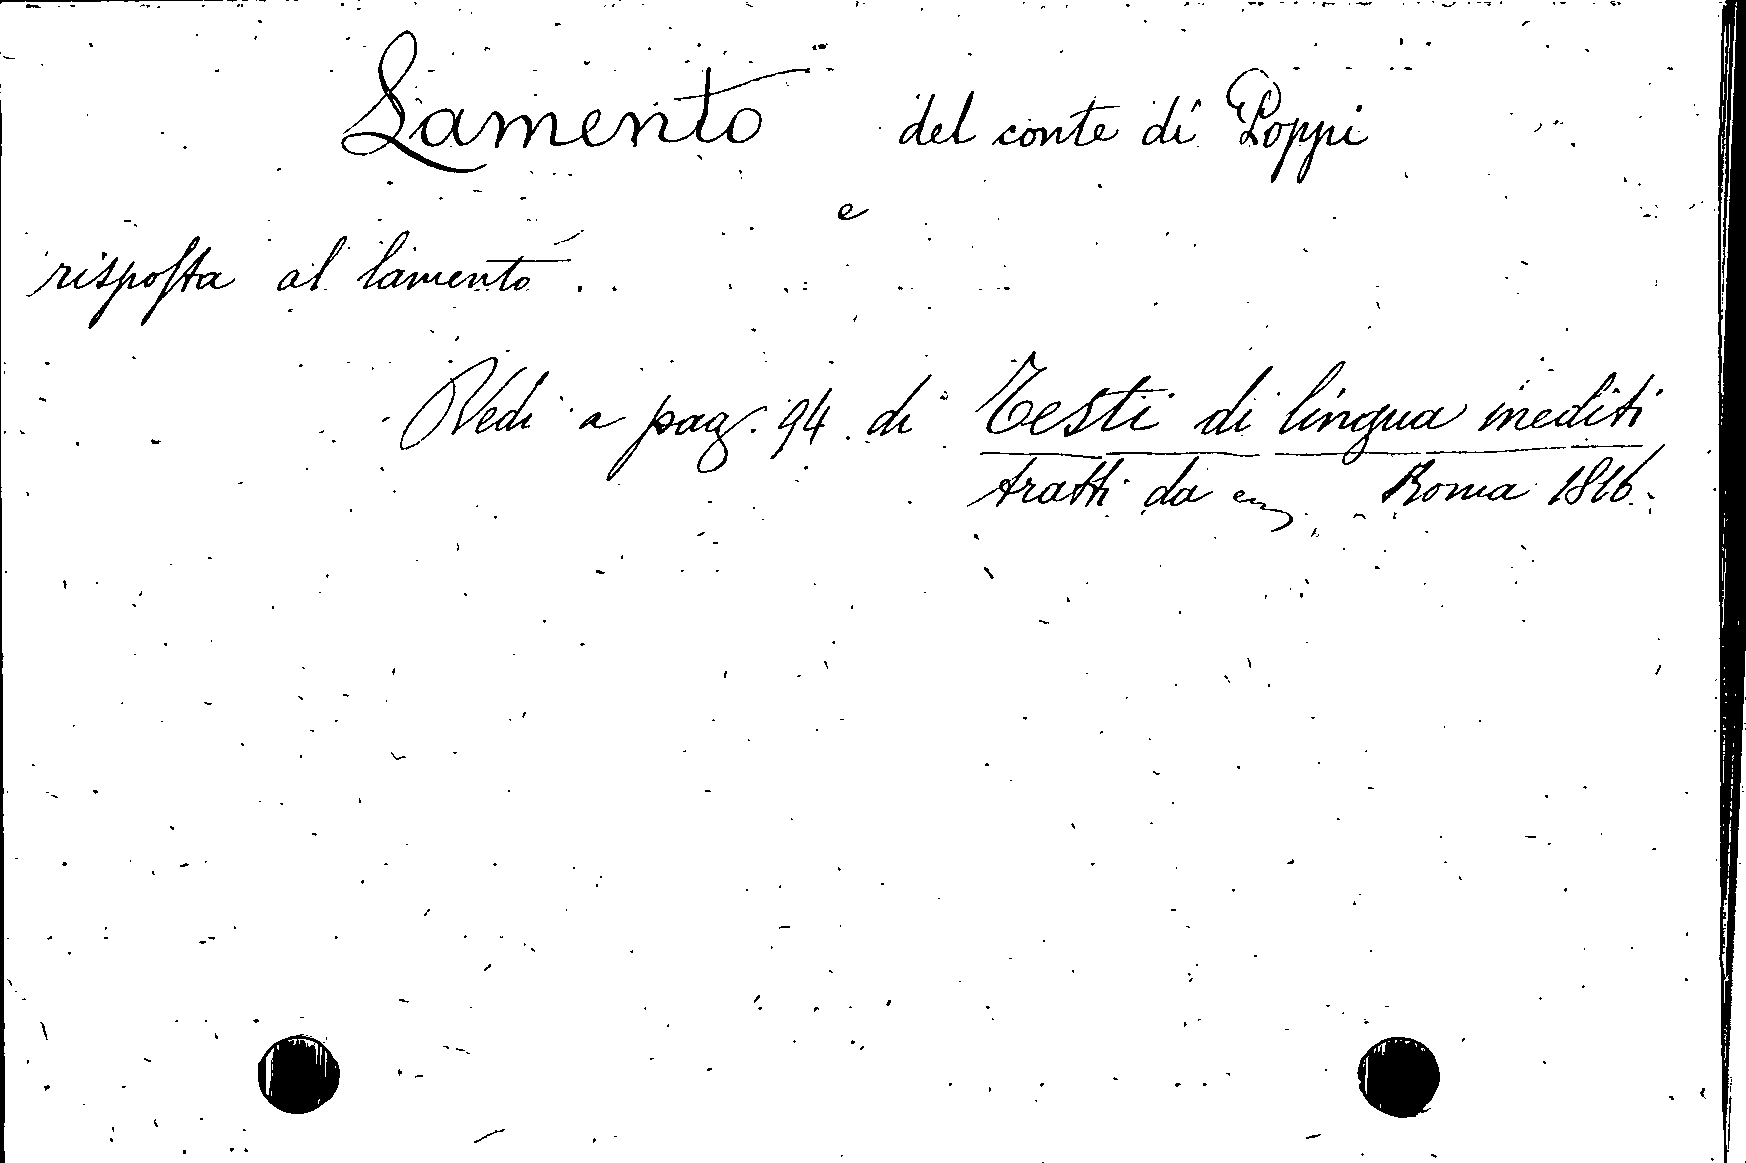 Lamento del conte di Poppi
e
risposta al lamento . .
Vedi a pag. 94 di Testi di lingua inediti
tratti da Roma 1816.